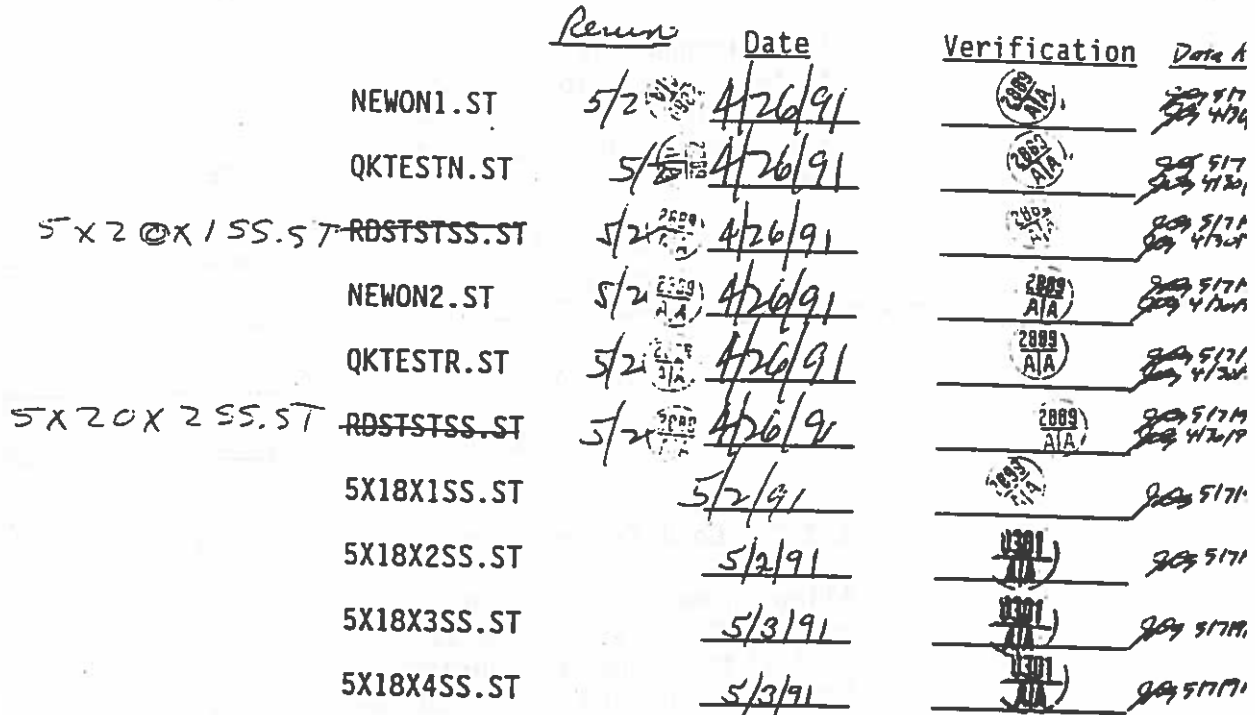 Rerun Date Verification Data
NEWON1.ST 5/2 4/26/91 2889 A A 5/7 4/30
QKTESTN.ST 5/2 4/26/91 2889 A A 5/7 4/30
5X20X1SS.ST RDSTSTSS.ST 5/2 2889 A 4/26/91 5/7 4/30
NEWON2.ST 5/2 2889 A A 4/26/91 2889 A A 5/7
QKTESTR.ST 5/2 A A 4/26/91 2889 A A 5/7
5X20X2SS.ST RDSTSTSS.ST 5/2 4/26/91 2889 A A 5/7 4/30/9
5X18X1SS.ST 5/2/91 5/7
5X18X2SS.ST 5/2/91 U301 A A 5/7
5X18X3SS.ST 5/3/91 U301 A A 5/7/91
5X18X4SS.ST 5/3/91 U301 A A 5/7/91